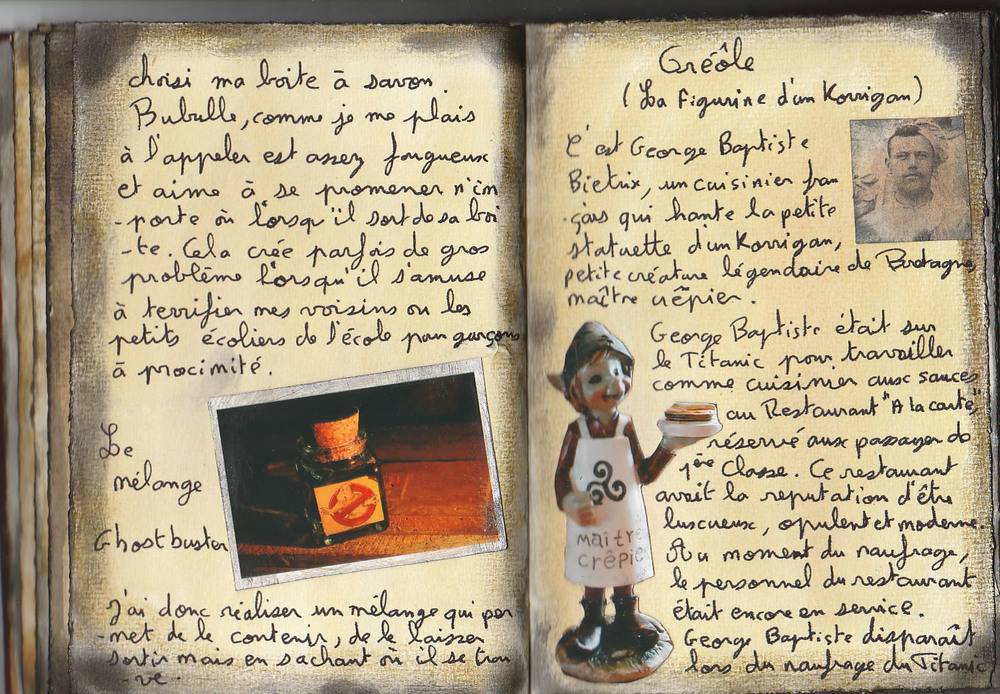 choisi ma boite à savon.
Bubulle, comme je me plais
à l'appeler est assez fougueux
et aime à se promener n'im
-porte où lorsqu'il sort de sa boi
-te. Cela crée parfois de gros
problème lorsqu'il s'amuse
à terrifier mes voisins ou les
petits écoliers de l'école pour garçons
à procimité.
Le
mélange
Ghostbuster
J'ai donc réaliser un mélange qui per
-met de le contenir, de le laisser
sortir mais en sachant où il se trou
-ve.
Gréôle
(La figurine d'un Korrigan)
C'est George Baptiste
Bietrix, un cuisinier fran
-çais qui hante la petite
statuette d'un Korrigan,
petite créature légendaire de Bretagne,
maître crêpier.
George Baptiste était sur
le Titanic pour travailler
comme cuisinier aux sauces
au Restaurant "A la carte",
réservé aux passager de
1ère Classe. Ce restaurant
avait la reputation d'être
luxueux, opulent et moderne.
Au moment du naufrage,
le personnel du restaurant
était encore en service.
George Baptiste disparaît
lors du naufrage du Titanic
maître
crêpie